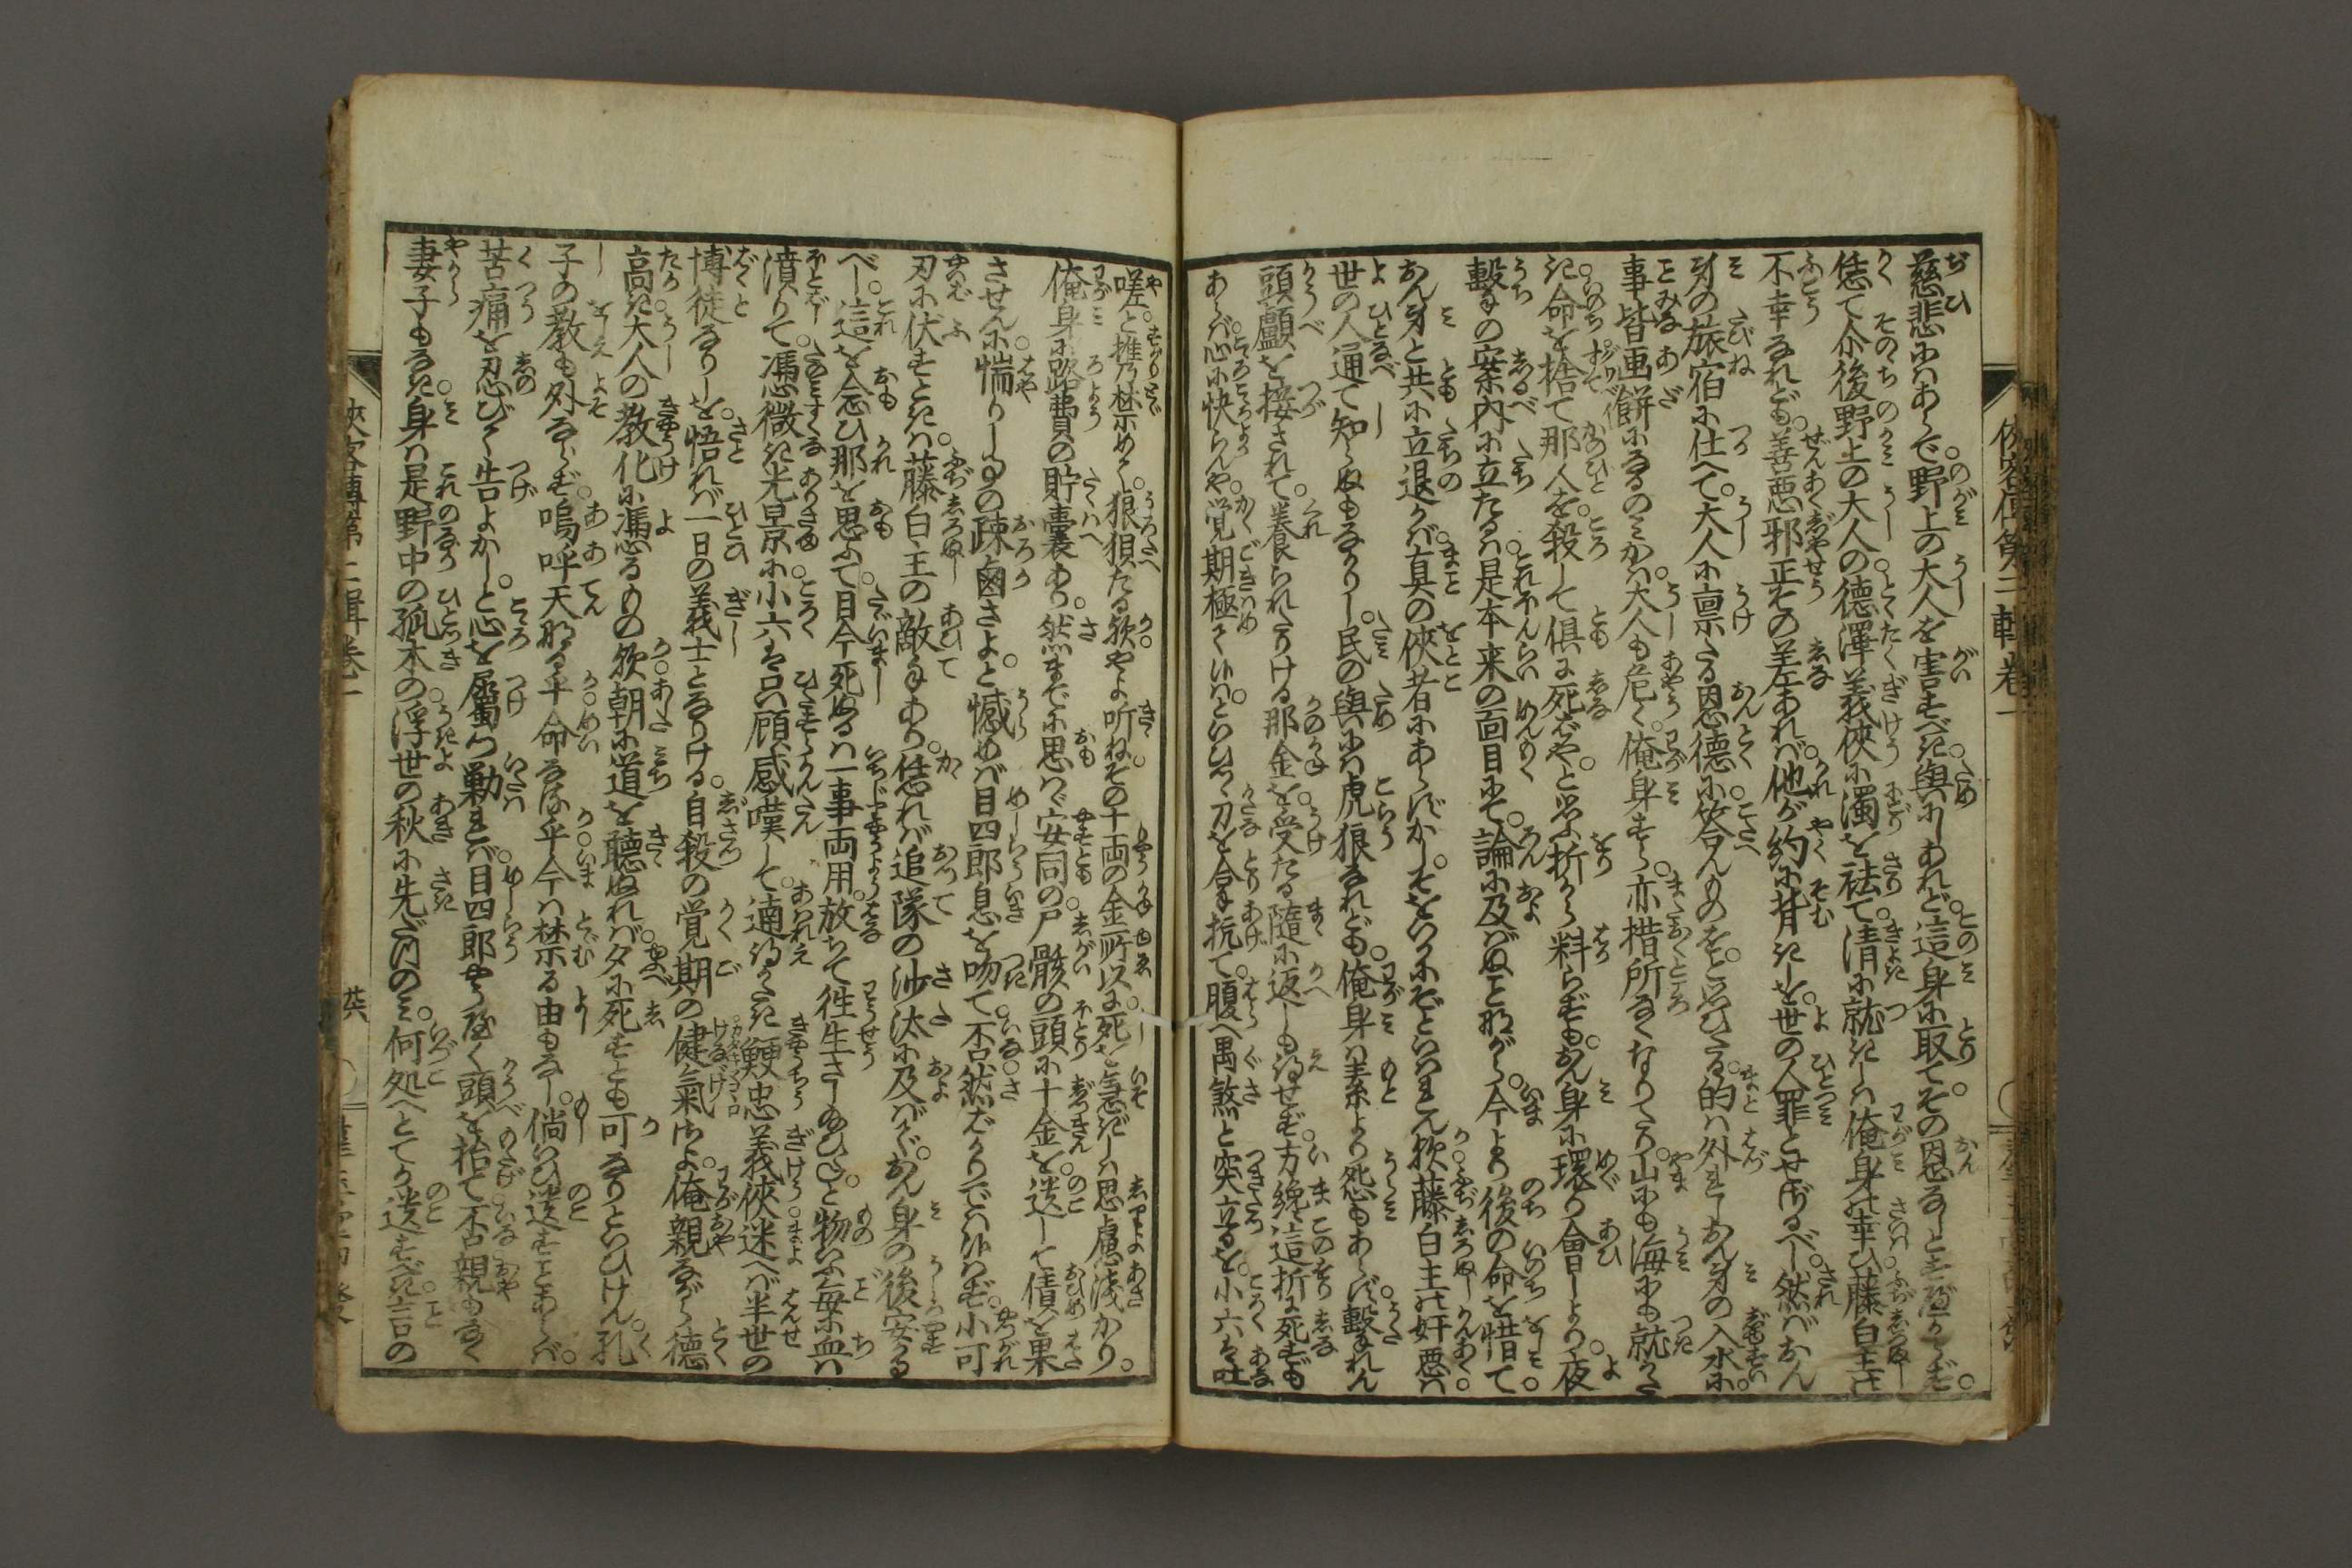 慈悲にはあらで。野上の大人を害すべき與にしあれど。這身に取て。その恩なしとすべからず。
恁て个後野上の大人の德澤義俠に濁を祛て。清に就きしは俺身の幸ひ藤白主の
不幸なれども。善惡邪正その差あれば。他が約に背きしを。世の人罪とせざるべし。然ばおん
身の旅宿に仕へて。大人に禀たる恩德に。答んものをと思ひたる。的は外れしおん身の入水に。
事皆画餅になるのみかは。大人も危く。俺身すら。亦措所なくなりてたり。山にも海にも就かた
き。命を捨て那人を。殺して俱に死ばや。と思ふ折から料らずも。おん身に環り會しより。夜
轂の案内に立たるは。是本来の面目にて。論に及ばぬことながら。今より後の命を惜て。
おん身と共に立退かば。真の俠者にあらずかし。そをいかにぞといはれんか。藤白主の奸惡は
世の人通て知らぬもなかりし。民の與には虎狼なれども。俺身は素より怨もあらず。轂れん
頭顱を接されて。養られたりける那金を。受たる隨に返しも得せず。方纔這折に死ずも
あらば。心に快らんや。覚期極て候は。といひつゝ刀を合手抗て。腹へ愚煞と突立るを。小六は吐
嗟と推禁めて。狼狽たる歟やよ听ねその十両の金所以に。死を急ぎしは思慮淺かり。
俺身に路費の貯嚢あり。然までに思はゞ安同の尸骸の頭に十金を。遺して債を果
させんに惴りしものの疎鹵さよ。と憾めば目四郎息を吻て。否然ばかりでは候はず。小可
刃に伏すとき。藤白主の敵手あり。恁れば追隊の沙汰に及ばで。おん身の後安かる
べし。這を念ひ那を思ふて。目今死ぬるは一事両用。放ちて徃生さし給ひね。と物いふ毎に血は
濆りて。憑微き光景に。小六は只顧感嘆して。適得がたき鯁忠義俠迷へば半世の
博徒なりしを。悟れば一日の義士となりける。自殺の覚期の健氣さよ。俺親ながら德
高き大人の教化に憑るもの歟。朝に道を聽ぬれば夕に死すとも可なりといひけん。孔
子の教も外ならず。嗚呼天なる乎命なる乎今は禁る由もなし。倘いひ遺すことあらば。
苦痛を忍びて告よかし。と心を屬つゝ勦れば。目四郎やうやく頭を擡て。否親もなく
妻子もなき。身は是野中の孤木の。浮世の秋に先だつのみ。何処へとてか遺すべき言の
俠客傳第二輯卷一